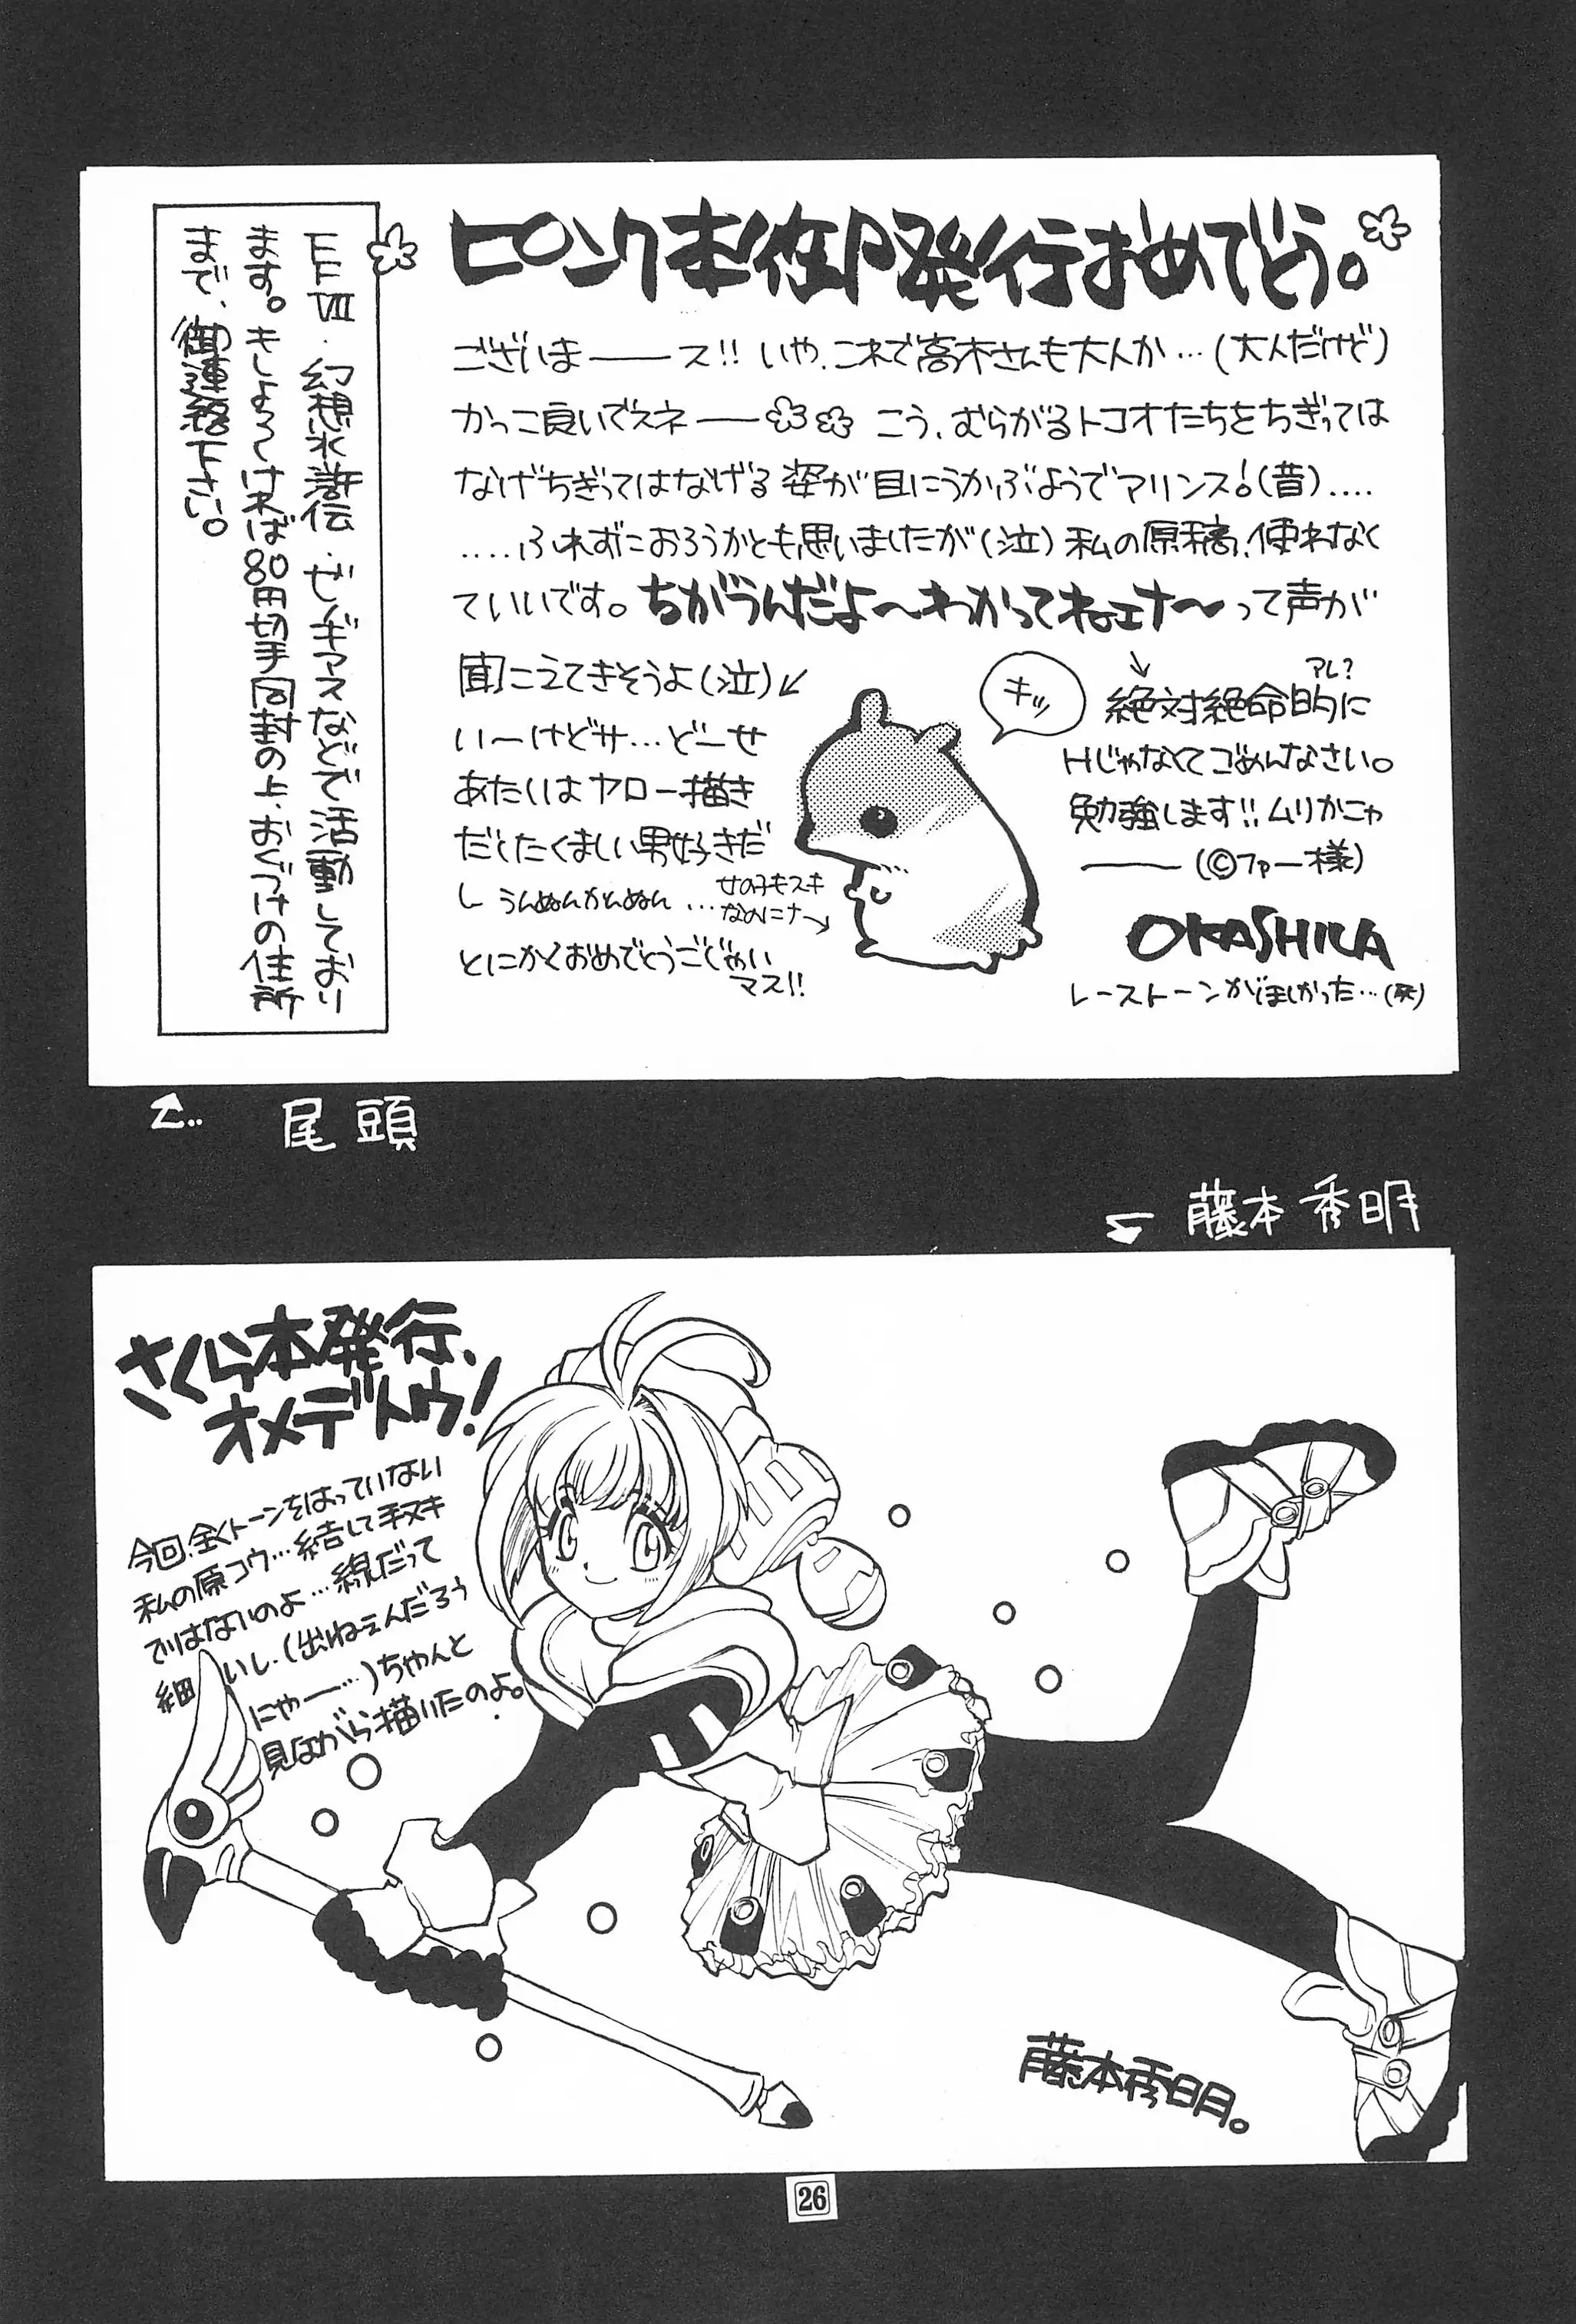 ピンク本御発行おめでとう。
ございま――ス!! いや、これで高木さんも大人か…(大人だけど)
かっこ良いでスネ―― こう、むらがるトコオたちをちぎっては
なげちぎってはなげる姿が目にうかぶようでマリンス!(昔)....
....ふれずにおろうかとも思いましたが(泣) 私の原稿、使わなく
ていいです。ちがうんだよ～わかってねェナ～って声が
聞こえてきそうよ(泣)
い～けどサ…ど―せ
あたいはヤロー描き
だとたくましい男好きだ
し うんぬんかんぬん…
女の子もスキ
なのにナ→
とにかくおめでとうごじゃい
マス!!
キッ
アレ?
絶対絶命的に
Hじゃなくてごめんなさい。
勉強します!! ムリかニャ
――(©ファー様)
OKASHILA
レーストーンがほしかった…
FFⅦ・幻想水滸伝・ゼノギアスなどで活動しており
ます。もしよろしければ80円切手同封の上、おくづけの住所
まで、御連絡下さい。
尾頭
藤本秀明
さくら本発行、
オメデトウ!
今回、全くトーンをはっていない
私の原コウ…結して手ヌキ
ではないのよ…線だって
細いし.(出ねぇんだろう
にゃー…)ちゃんと
見ながら描いたのよ。
藤本秀明。
26